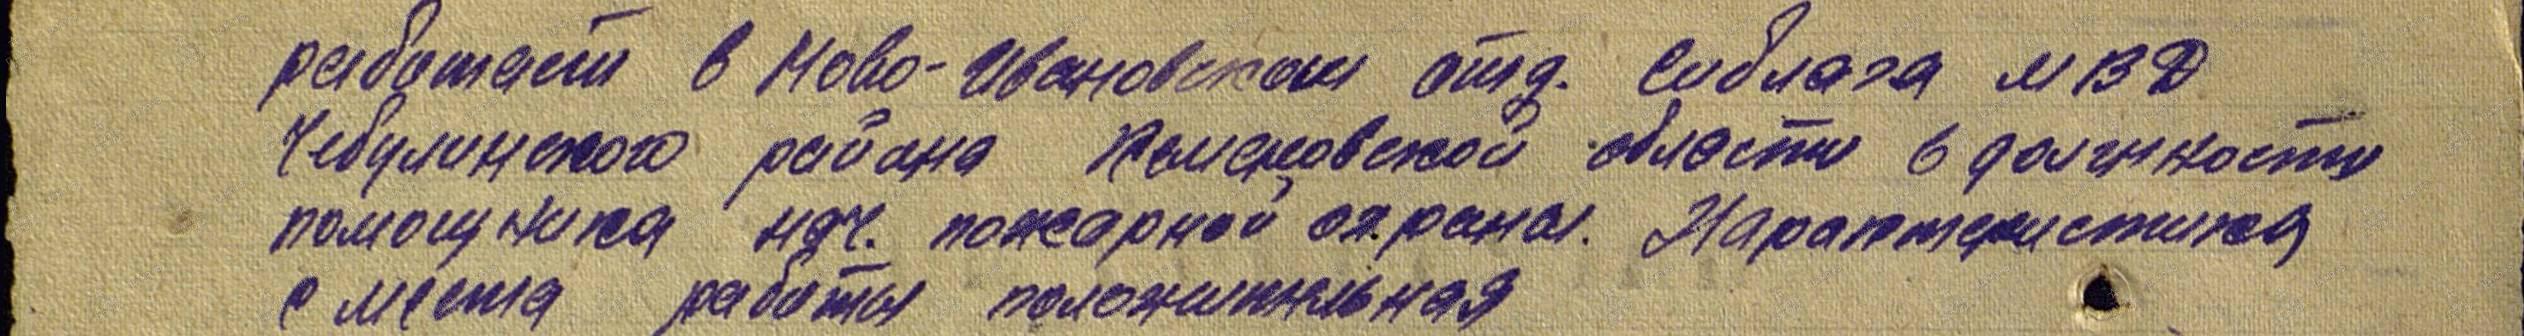 работает в Ново-Ивановском отд. Сиблага МВД
Чебулинского района Кемеровской области в должности
помощника нач. пожарной охраны. Характеристика
с места работы положительная